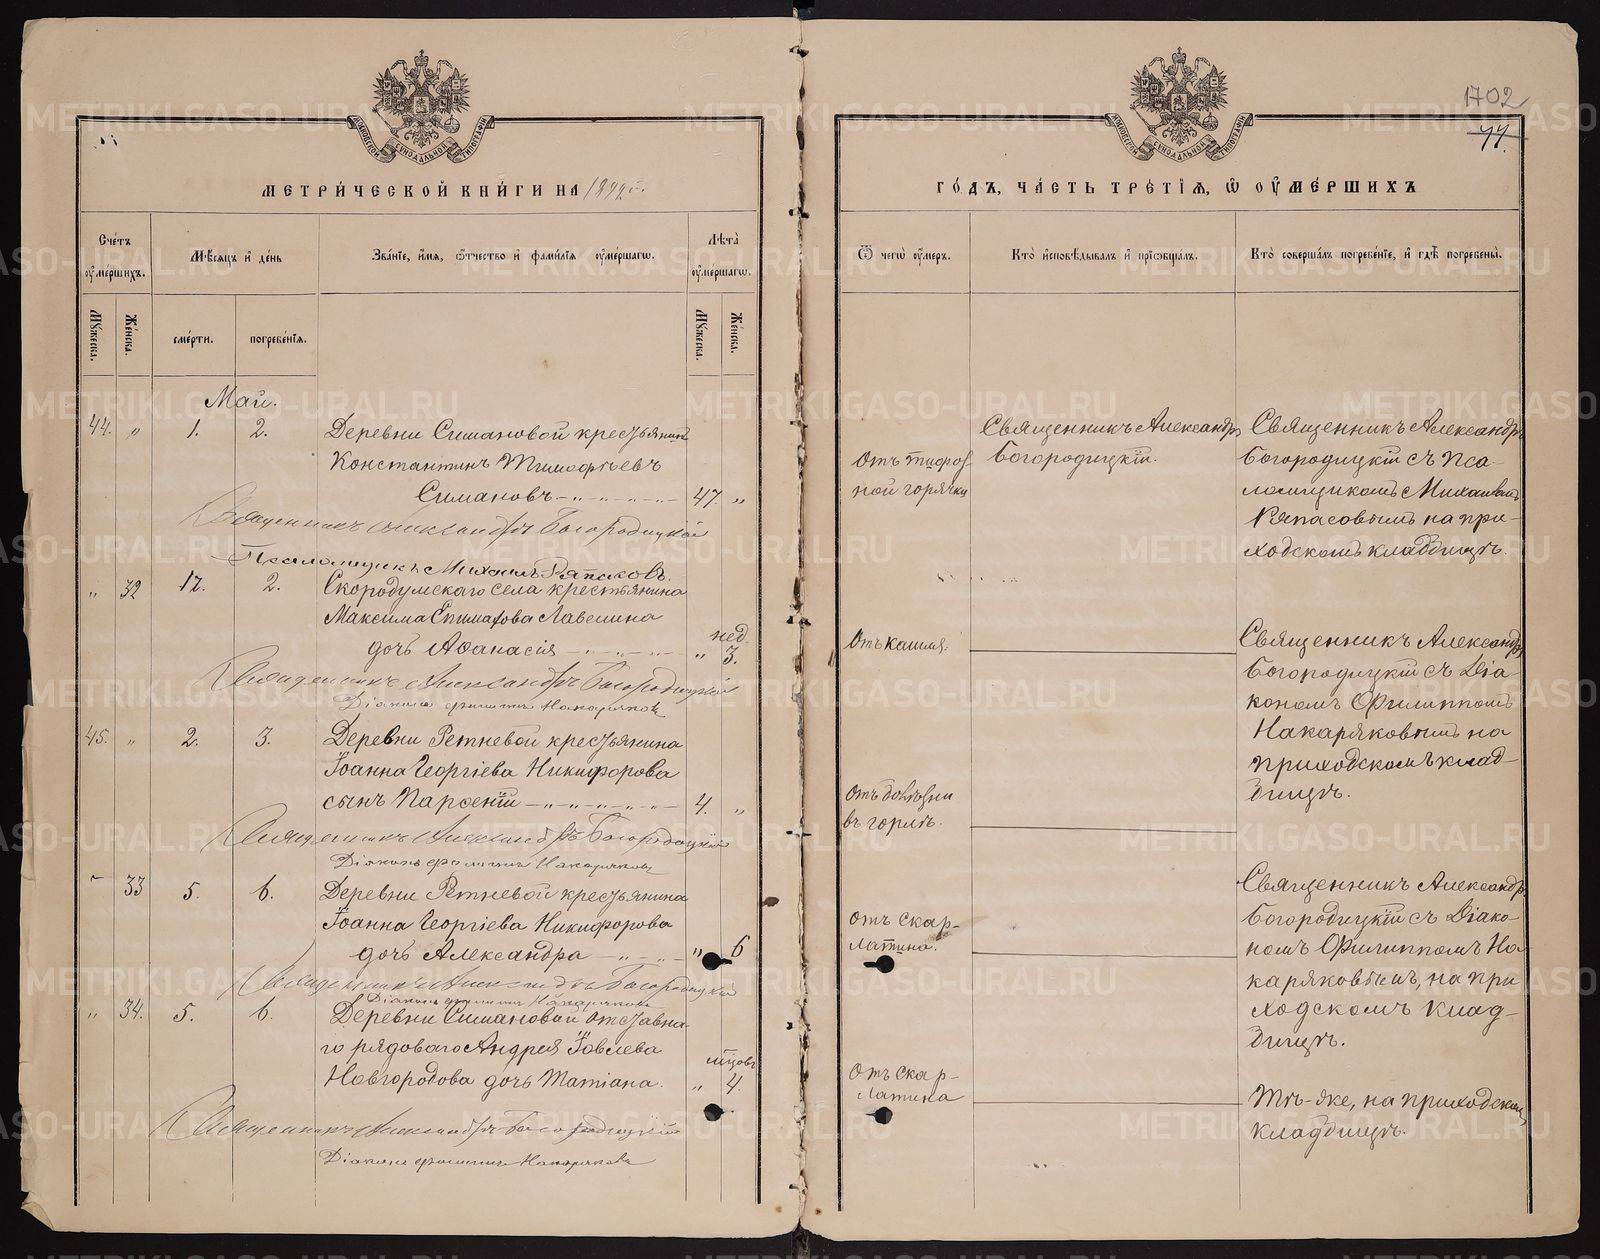 МОСКОВСКОЙ СѴНОДАЛЬНОЙ ТИПОГРАФІИ
МЕТРИ́ЧЕСКОЙ КНИ́ГИ НА 1892 г.
Сче́тъ оу҆ме́ршихъ.
Мѣ́сяцъ и҆ де́нь
Зва́нїе, и҆́мя, ѻ҆́тчество и҆ фами́лїя оу҆ме́ршагѡ.
Лѣ́та оу҆ме́ршагѡ.
Му́жеска.
Же́нска.
сме́рти.
погребе́нїя.
Му́жеска.
Же́нска.
Май.
44. " 1. 2. Деревни Симановой крестьянинъ
Константинъ Тимофѣевъ
Симановъ 47. "
Священникъ Александръ Богородицкій
Псаломщикъ Михаилъ Ряпасовъ.
" 32 17. 2. Скородумскаго села крестьянина
Максима Епимахова Лавелина
нед.
дочь Аѳанасія " 3.
Священникъ Александръ Богородицкій
Діаконъ Филиппъ Накаряковъ
45. " 2. 3. Деревни Ретневой крестьянина
Іоанна Георгіева Никифорова
сынъ Парѳеній 4. "
Священникъ Александръ Богородицкій
Діаконъ Филиппъ Накаряковъ
" 33 5. 6. Деревни Ретневой крестьянина
Іоанна Георгіева Никифорова
дочь Александра " 6
Священникъ Александръ Богородицкій
Діаконъ Филиппъ Накаряковъ
" 34. 5. 6. Деревни Симановой отставна-
го рядоваго Андрея Іовлева
мѣсцовъ
Новгородова дочь Татіана. " 4.
Священникъ Александръ Богородицкій
Діаконъ Филиппъ Накаряковъ
1702
44.
МОСКОВСКОЙ СѴНОДАЛЬНОЙ ТИПОГРАФІИ
ГО́ДЪ, ЧА́СТЬ ТРЕ́ТІЯ, Ѡ҆ ОУ҆МЕ́РШИХЪ
Ѿ чегѡ̀ оу҆́меръ.
Кто̀ и҆сповѣ́дывалъ и҆ прїѡбща́лъ.
Кто̀ соверша́лъ погребе́нїе, и҆ гдѣ̀ погребены̀.
Отъ тифоз
ной горячки
Священникъ Александръ
Богородицкій.
Священникъ Александръ
Богородицкій съ Пса-
ломщикомъ Михаиломъ
Ряпасовымъ на при-
ходскомъ кладбищѣ.
Отъ кашля.
Священникъ Александръ
Богородицкій съ Діа-
кономъ Филиппомъ
Накаряковымъ на
приходскомъ клад-
бищѣ.
Отъ болѣзни
въ горлѣ.
Отъ скар-
латина.
Священникъ Александръ
Богородицкій съ Діако-
номъ Филиппомъ На-
каряковымъ, на при
ходскомъ клад-
бищѣ.
Отъ скар-
латина
Тѣ-же, на приходскомъ
кладбищѣ.
METRIKI.GASO-URAL.RU